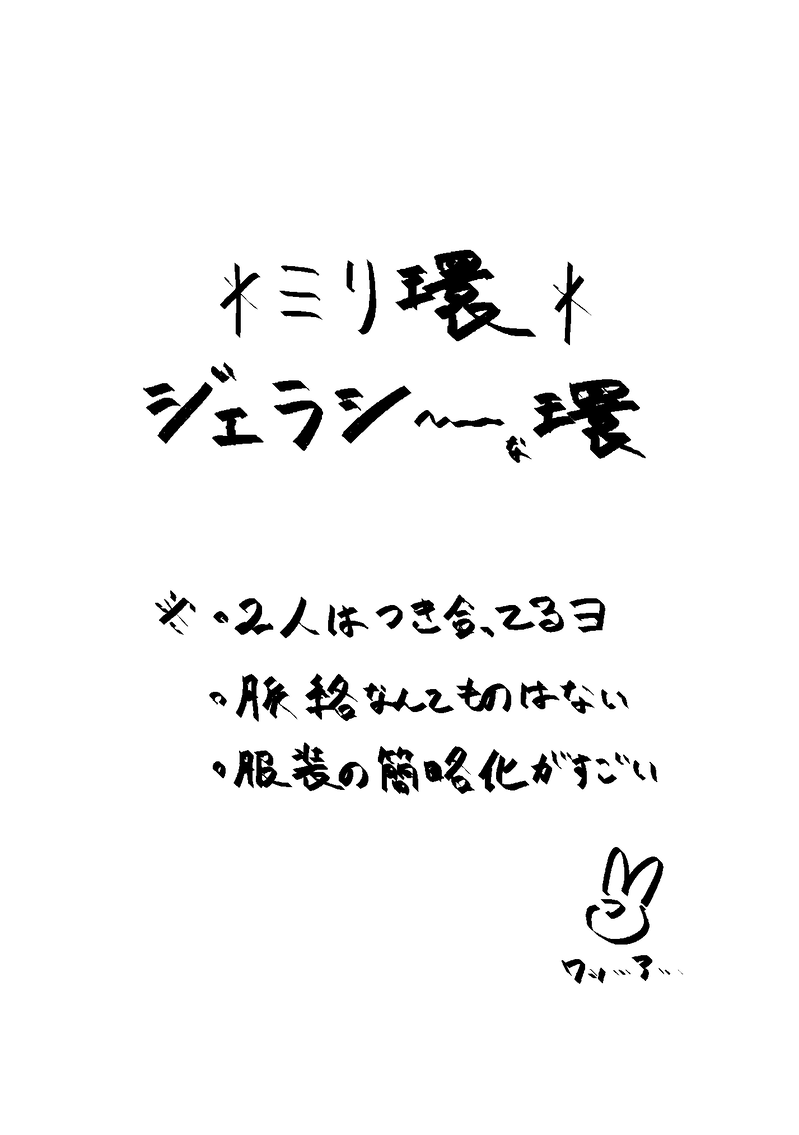 *ミリ環*
ジェラシ〜な環
※・2人はつき合ってるヨ
・脈絡なんてものはない
・服装の簡略化がすごい
ワッ…ア…